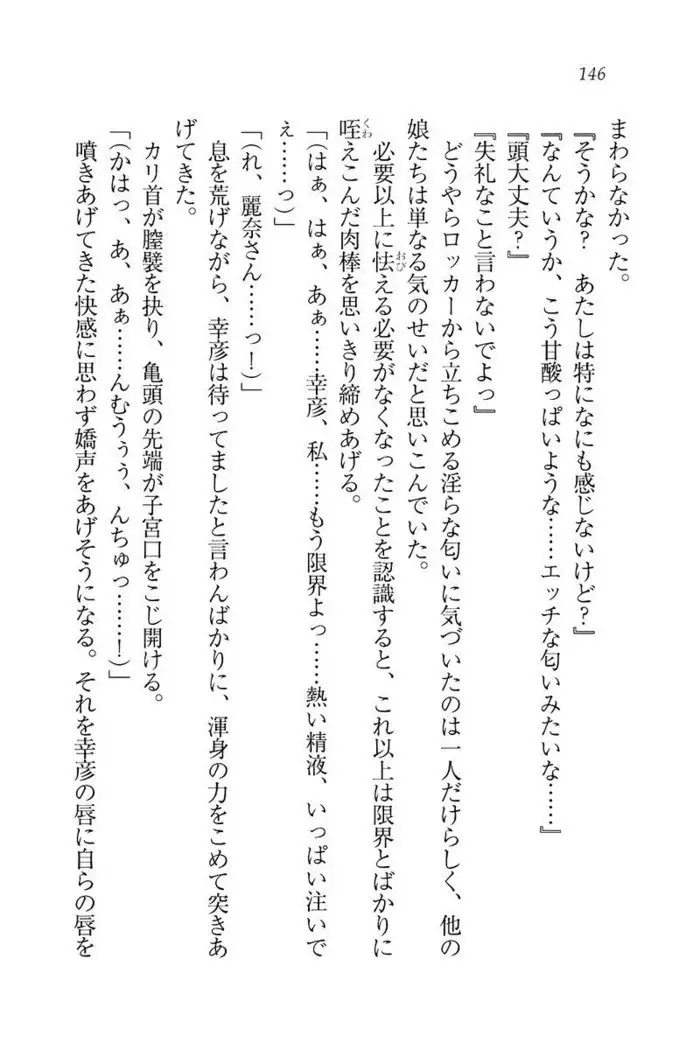 146
まわらなかった。
『そうかな？　あたしは特になにも感じないけど？』
『なんていうか、こう甘酸っぱいような……エッチな匂いみたいな……』
『頭大丈夫？』
『失礼なこと言わないでよっ』
どうやらロッカーから立ちこめる淫らな匂いに気づいたのは一人だけらしく、他の
娘たちは単なる気のせいだと思いこんでいた。
必要以上に怯える必要がなくなったことを認識すると、これ以上は限界とばかりに
咥えこんだ肉棒を思いきり締めあげる。
「(はぁ、はぁ、あぁ……幸彦、私……もう限界よっ……熱い精液、いっぱい注いで
ぇ……っ)」
「(れ、麗奈さん……っ！)」
息を荒げながら、幸彦は待ってましたと言わんばかりに、渾身の力をこめて突きあ
げてきた。
カリ首が膣襞を抉り、亀頭の先端が子宮口をこじ開ける。
「(かはっ、あ、あぁ……んむうぅぅ、んちゅっ……！)」
噴きあげてきた快感に思わず嬌声をあげそうになる。それを幸彦の唇に自らの唇を